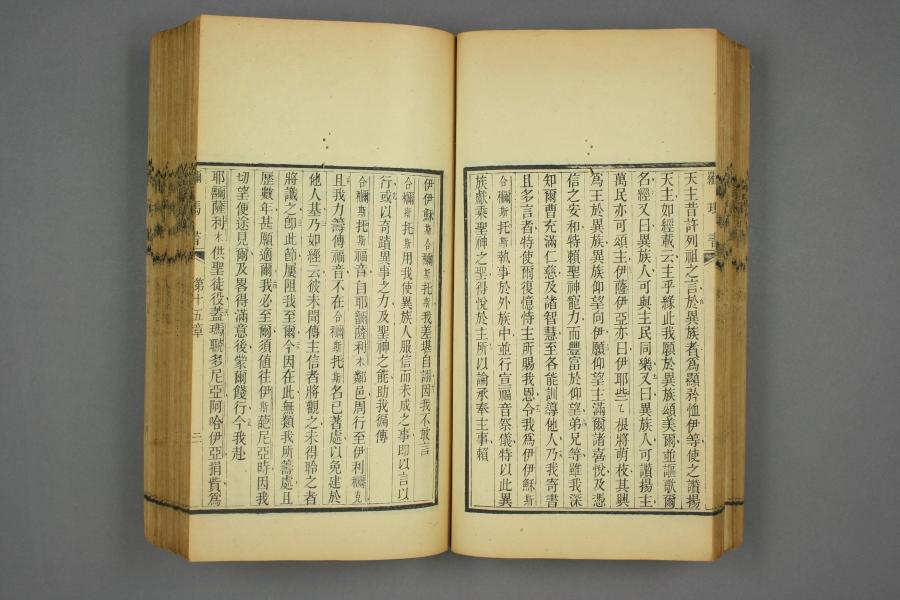 天主昔許列祖之言於異族者爲顯矜恤伊等使之讚揚
天主如經載云主乎緣此我願於異族頌美爾並謳歌爾
名經又曰異族人可與主民同樂又曰異族人可讚揚主
萬民亦可頌主伊薩伊亞亦曰伊耶些乙根將萌枝其興
爲王於異族異族仰望向伊願仰望主滿爾諸嘉悅及憑
信之安和特賴聖神寵力而豐富於仰望弟兄等雖我深
知爾曹充滿仁慈及諸智慧至各能訓導他人乃我寄書
且多言者特使爾復憶恃主所賜我恩令我爲伊伊穌斯
合彌斯托斯執事於外族中並行宣福音祭儀特以此異
族獻乘聖神之聖得悅於主所以論承奉主事賴
伊伊穌斯合彌斯托斯我差堪自詡因我不敢言
合彌斯托斯用我使異族人服信而未成之事即以言以
行或以奇蹟異事之力及聖神之能助我徧傳
合彌斯托斯福音自耶嚪薩利木鄰邑周行至伊利彌克
且我力籌傳福音不在合彌斯托斯名已著處以免建於
他人基乃如經云彼未聞傳主信者將觀之未得聆之者
將識之卽此節屢阻我至爾今因在此無類我所籌處且
歷數年甚願適爾我必至爾須値往伊斯葩尼亞時因我
切望便途見爾及畧得滿意後蒙爾餞行今我赴
耶嚪薩利木供聖徒役蓋瑪聽多尼亞阿哈伊亞捐貲爲
第十五章
二